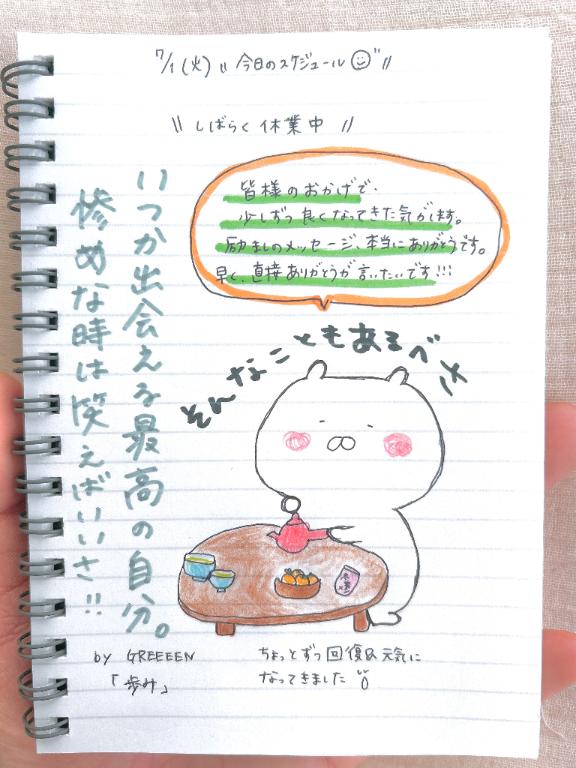 7/1(火) 〃今日のスケジュール〃
〃しばらく休業中〃
皆様のおかげで、
少しずつ良くなってきた気がします。
励ましのメッセージ、本当にありがとうです。
早く、直接ありがとうが言いたいです!!!
いつか出会える最高の自分。
惨めな時は笑えばいいさ!!
そんなこともあるべさ
by GREEEEN
「歩み」
ちょっとずつ回復&元気に
なってきました